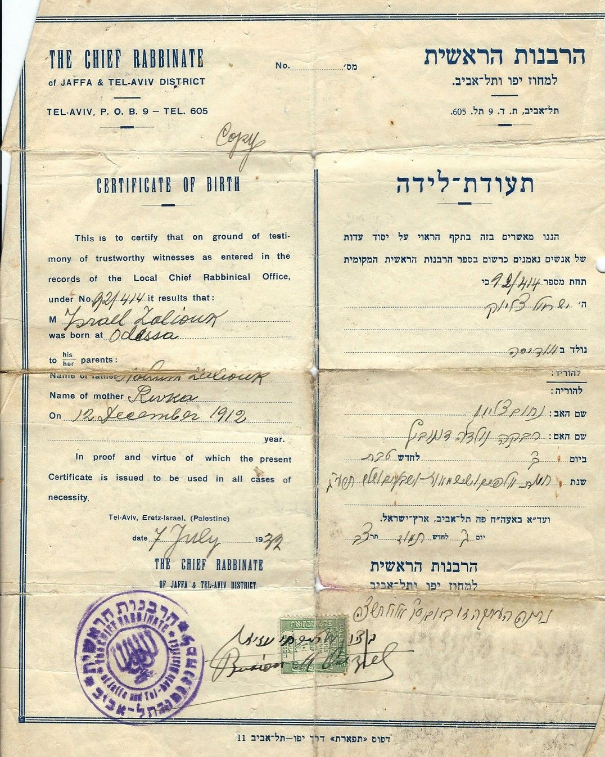 THE CHIEF RABBINATE
of JAFFA & TEL-AVIV DISTRICT
TEL-AVIV, P. O. B. 9 – TEL. 605
No. מס׳
הרבנות הראשית
למחוז יפו ותל־אביב.
תל־אביב, ת. ד. 9 תל. 605.
Copy
CERTIFICATE OF BIRTH
This is to certify that on ground of testi-
mony of trustworthy witnesses as entered in the
records of the Local Chief Rabbinical Office,
under No. 92/414 it results that:
M Israel Zaliouk
was born at Odessa
to his/her parents:
Name of father Nahum Zaliouk
Name of mother Rivka
On 12 December 1912
year.
In proof and virtue of which the present
Certificate is issued to be used in all cases of
necessity.
Tel-Aviv, Eretz-Israel, (Palestine)
date 7 July 1932
THE CHIEF RABBINATE
OF JAFFA & TEL-AVIV DISTRICT
תעודת־לידה
הננו מאשרים בזה בתקף הראוי על יסוד עדות
של אנשים נאמנים כרשום בספר הרבנות הראשית המקומית
תחת מספר 92/414 כי
ה׳ ישראל צליוק
נולד ב אודיסה
להוריו:
להוריה:
שם האב: נחום צליוק
שם האם: רבקה
ביום ב לחדש טבת
שנת
ועד״א באעה״ח פה תל־אביב, ארץ־ישראל.
יום ג לחדש תמוז תרצ״ב
הרבנות הראשית
למחוז יפו ותל־אביב
הרבנות הראשית
THE CHIEF RABBINATE
of Jaffa and Tel-Aviv
דפוס ״תפארת״ דרך יפו–תל־אביב 11